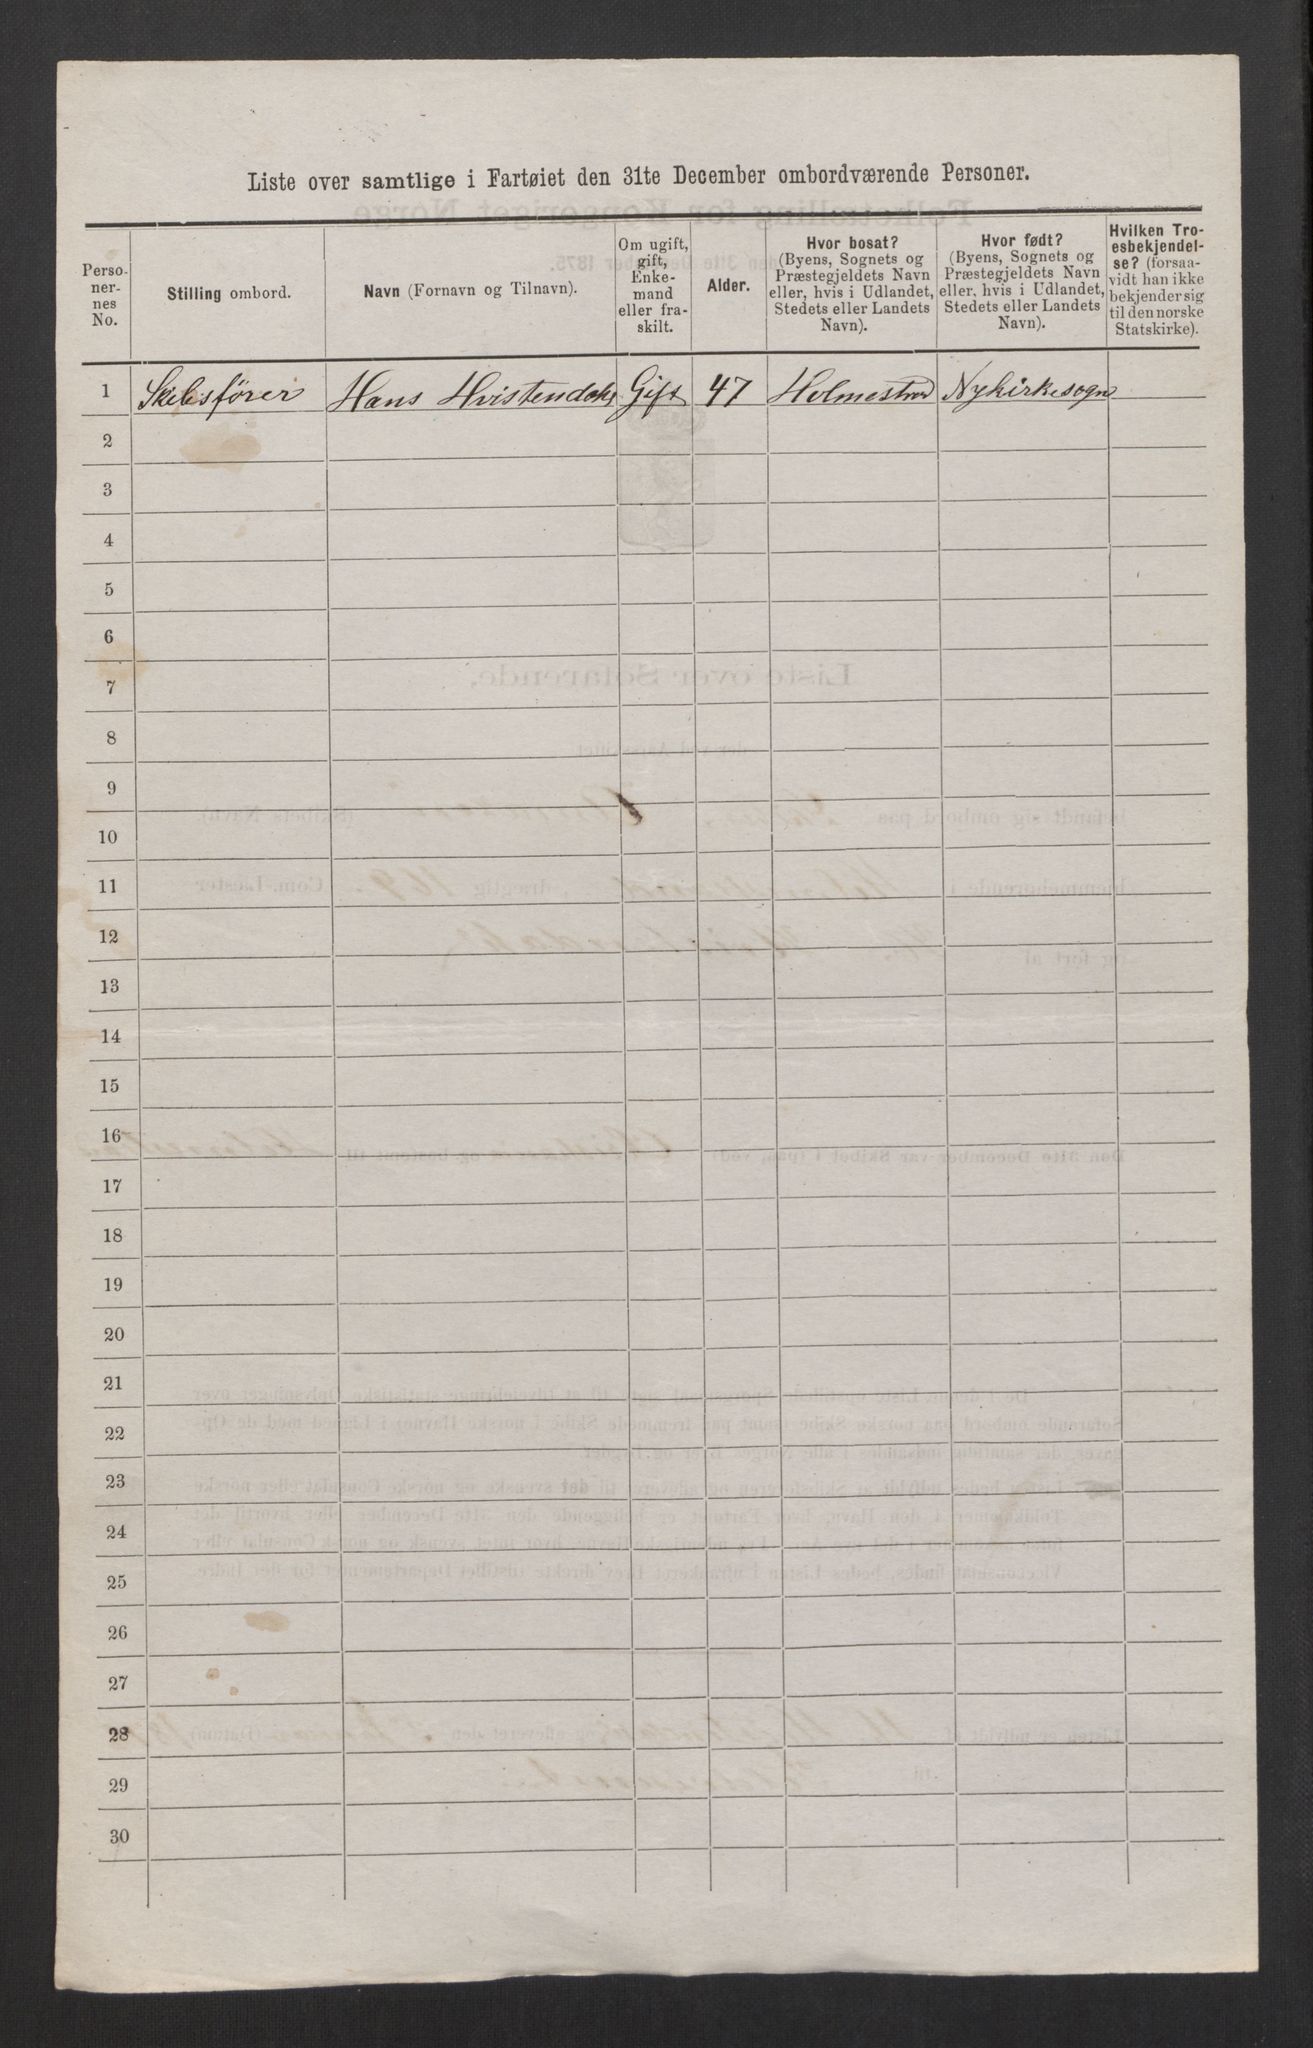 Liste over samtlige i Fartøiet den 31te December ombordværende Personer.
Perso-
ner-
nes
No.
Stilling ombord.
Navn (Fornavn og Tilnavn).
Om ugift,
gift,
Enke-
mand
eller fra-
skilt.
Alder.
Hvor bosat?
(Byens, Sognets og
Præstegjeldets Navn
eller, hvis i Udlandet,
Stedets eller Landets
Navn).
Hvor født?
(Byens, Sognets og
Præstegjeldets Navn
eller, hvis i Udlandet,
Stedets eller Landets
Navn).
Hvilken Tro-
esbekjendel-
se? (forsaa-
vidt han ikke
bekjender sig
til den norske
Statskirke).
1 Skibsfører Hans Hvistendahl Gift 47 Holmestrand Nykirkesogn
2
3
4
5
6
7
8
9
10
11
12
13
14
15
16
17
18
19
20
21
22
23
24
25
26
27
28
29
30